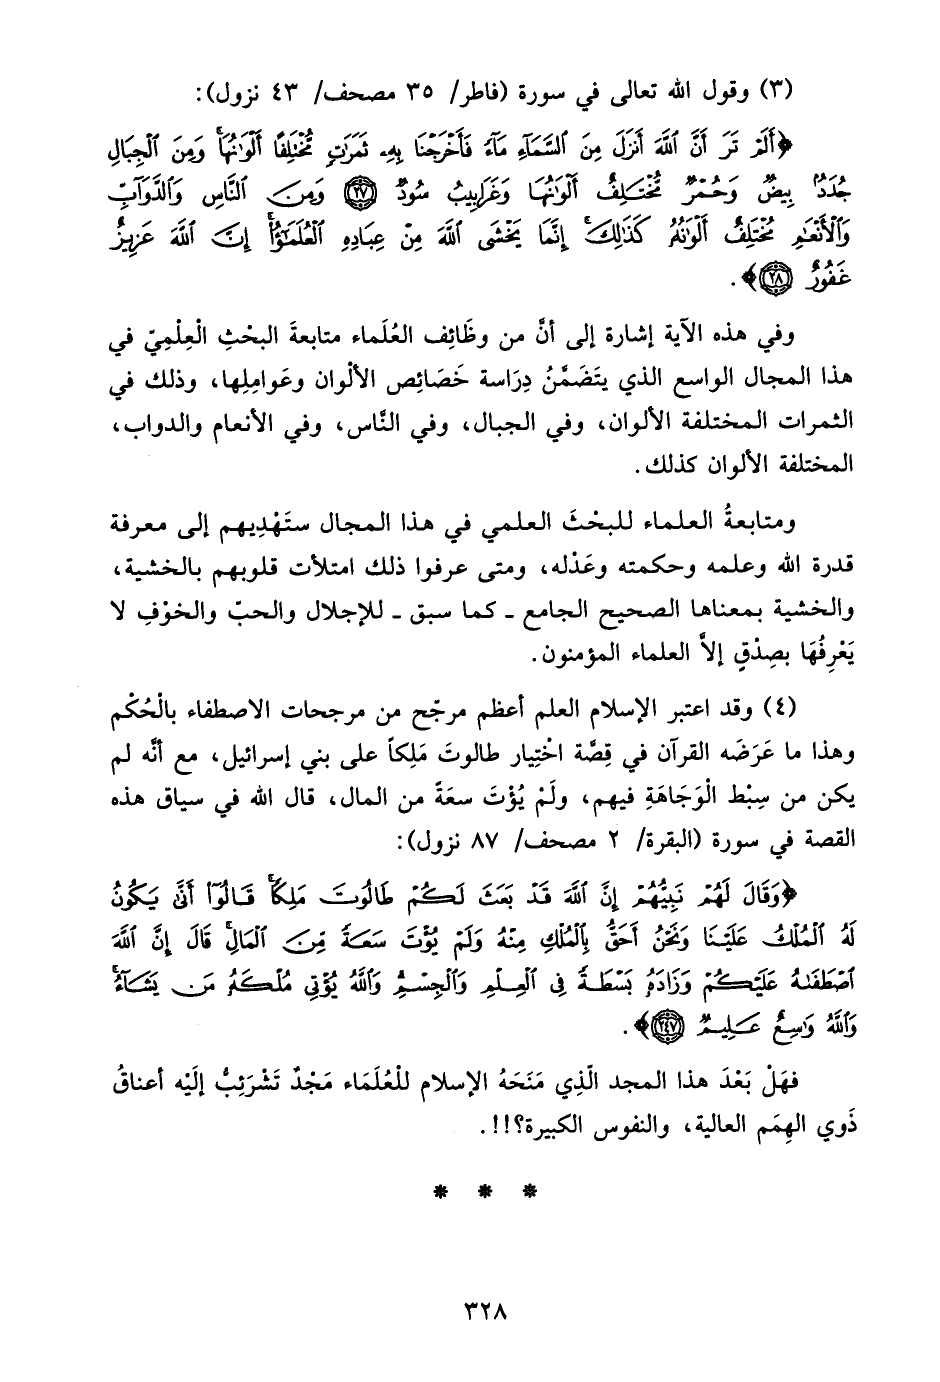 (٣) وقول الله تعالى في سورة (فاطر/ ٣٥ مصحف/ ٤٣ نزول):
﴿أَلَمْ تَرَ أَنَّ ٱللَّهَ أَنزَلَ مِنَ ٱلسَّمَآءِ مَآءً فَأَخْرَجْنَا بِهِۦ ثَمَرَٰتٍ مُّخْتَلِفًا أَلْوَٰنُهَا ۚ وَمِنَ ٱلْجِبَالِ
جُدَدٌۢ بِيضٌ وَحُمْرٌ مُّخْتَلِفٌ أَلْوَٰنُهَا وَغَرَابِيبُ سُودٌ ﴿٢٧﴾ وَمِنَ ٱلنَّاسِ وَٱلدَّوَآبِّ
وَٱلْأَنْعَٰمِ مُخْتَلِفٌ أَلْوَٰنُهُۥ كَذَٰلِكَ ۗ إِنَّمَا يَخْشَى ٱللَّهَ مِنْ عِبَادِهِ ٱلْعُلَمَٰٓؤُا۟ ۗ إِنَّ ٱللَّهَ عَزِيزٌ
غَفُورٌ ﴿٢٨﴾﴾.
وفي هذه الآية إشارة إلى أنَّ من وظَائِف العُلَماء متابعةَ البحْثِ الْعِلْمِيّ في
هذا المجال الواسع الذي يتَضَمَّنُ دِرَاسة خَصَائِص الألْوان وعَوامِلِها، وذلك في
الثمرات المختلفة الألوان، وفي الجبال، وفي النَّاس، وفي الأنعام والدواب،
المختلفة الألوان كذلك.
ومتابعةُ العلماء للبحْثَ العلمي في هذا المجال ستَهْدِيهم إلى معرفة
قدرة الله وعلمه وحكمته وعَدْله، ومتى عرفوا ذلك امتلأت قلوبهم بالخشية،
والخشية بمعناها الصحيح الجامع ـ كما سبق ـ للإجلال والحبّ والخوْفِ لا
يَعْرِفُهَا بصِدْقٍ إلاَّ العلماء المؤمنون.
(٤) وقد اعتبر الإسلام العلم أعظم مرجّح من مرجحات الاصطفاء بالْحُكْم
وهذا ما عَرَضَه القرآن في قِصَّة اخْتِيار طالوتَ مَلِكاً على بني إسرائيل، مع أنَّه لم
يكن من سِبْط الْوَجَاهَةِ فيهم، ولَمْ يُؤْتَ سعَةً من المال، قال الله في سياق هذه
القصة في سورة (البقرة/ ٢ مصحف/ ٨٧ نزول):
﴿وَقَالَ لَهُمْ نَبِيُّهُمْ إِنَّ ٱللَّهَ قَدْ بَعَثَ لَكُمْ طَالُوتَ مَلِكًا ۚ قَالُوٓا۟ أَنَّىٰ يَكُونُ
لَهُ ٱلْمُلْكُ عَلَيْنَا وَنَحْنُ أَحَقُّ بِٱلْمُلْكِ مِنْهُ وَلَمْ يُؤْتَ سَعَةً مِّنَ ٱلْمَالِ ۚ قَالَ إِنَّ ٱللَّهَ
ٱصْطَفَىٰهُ عَلَيْكُمْ وَزَادَهُۥ بَسْطَةً فِى ٱلْعِلْمِ وَٱلْجِسْمِ ۖ وَٱللَّهُ يُؤْتِى مُلْكَهُۥ مَن يَشَآءُ ۚ
وَٱللَّهُ وَٰسِعٌ عَلِيمٌ ﴿٢٤٧﴾﴾.
فهَلْ بَعْدَ هذا المجد الَّذِي مَنَحَهُ الإسلام للْعُلَمَاء مَجْدٌ تَشْرَئِبُّ إلَيْه أعناقُ
ذَوي الهِمَم العالية، والنفوس الكبيرة؟!!.
* * *
٣٢٨